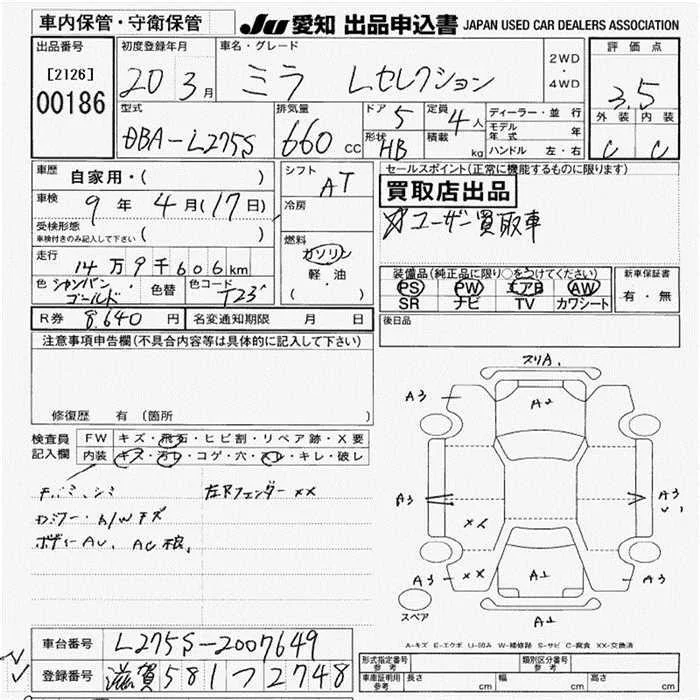 車内保管・守衛保管
JU 愛知 出品申込書 JAPAN USED CAR DEALERS ASSOCIATION
出品番号
[2126]
00186
初度登録年月
20 3月
車名・グレード
ミラ Lセレクション
2WD
・
4WD
評価点
3.5
外装 内装
C C
型式
DBA-L275S
排気量
660 cc
ドア 5
形状 HB
定員 4人
積載 kg
ディーラー・並行
モデル年式 年
ハンドル 左・右
車歴 自家用・( )
車検 9年 4月(17日)
受検形態
車検付きのみ記入して下さい ( )
走行
14万9千606km
色 シャンパンゴールド 色替 色コード T23
R券 8,640 円 名変通知期限 月 日
シフト
AT
冷房
燃料
ガソリン
軽・油
( ・ )
セールスポイント(正常に機能するものに限ります)
買取店出品
☆ユーザー買取車
装備品(純正品に限り○をつけてください)
PS PW エアB AW
SR ナビ TV カワシート
新車保証書
有・無
後日品
注意事項申告欄(不具合内容等は具体的に記入して下さい)
修復歴 有 (箇所 )
検査員記入欄
FW キズ・飛石・ヒビ割・リペア跡・X要
内装 キズ・汚レ・コゲ・穴・スレ・キレ・破レ
左Rフェンダーxx
スリA.
A3
A2
A3
A3
xx
A3
A3
xx
A1
A3
A1
スペア
A-キズ E-エクボ U-凹み W-補修跡 S-サビ C-腐食 XX-交換済
車台番号 L275S-2007649
登録番号 滋賀581つ2748
形式指定番号 参考
類別区分番号 参考
車庫証明用 参考 長さ cm 幅 cm 高さ cm